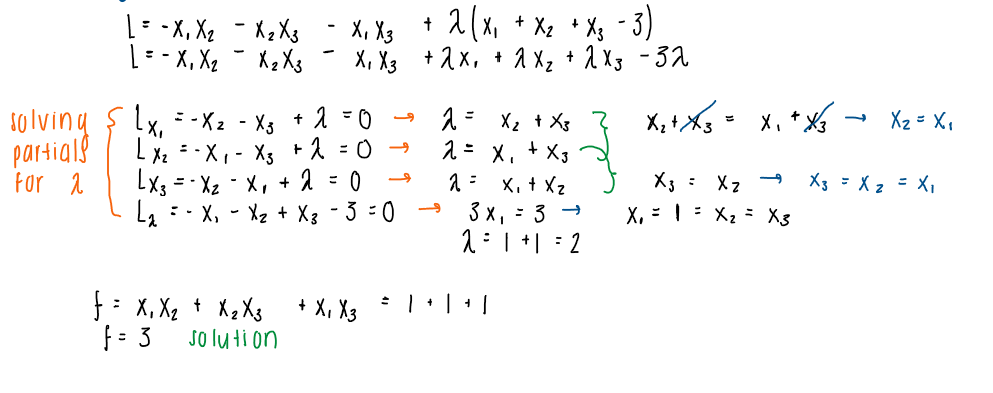 L = -x₁x₂ - x₂x₃ - x₁x₃ + λ(x₁ + x₂ + x₃ - 3)
L = -x₁x₂ - x₂x₃ - x₁x₃ + λx₁ + λx₂ + λx₃ - 3λ
solving partials for λ
Lx₁ = -x₂ - x₃ + λ = 0 → λ = x₂ + x₃ x₂ + x₃ = x₁ + x₃ → x₂ = x₁
Lx₂ = -x₁ - x₃ + λ = 0 → λ = x₁ + x₃
Lx₃ = -x₂ - x₁ + λ = 0 → λ = x₁ + x₂ x₃ = x₂ → x₃ = x₂ = x₁
Lλ = -x₁ - x₂ + x₃ - 3 = 0 → 3x₁ = 3 → x₁ = 1 = x₂ = x₃
λ = 1 + 1 = 2
f = x₁x₂ + x₂x₃ + x₁x₃ = 1 + 1 + 1
f = 3 solution